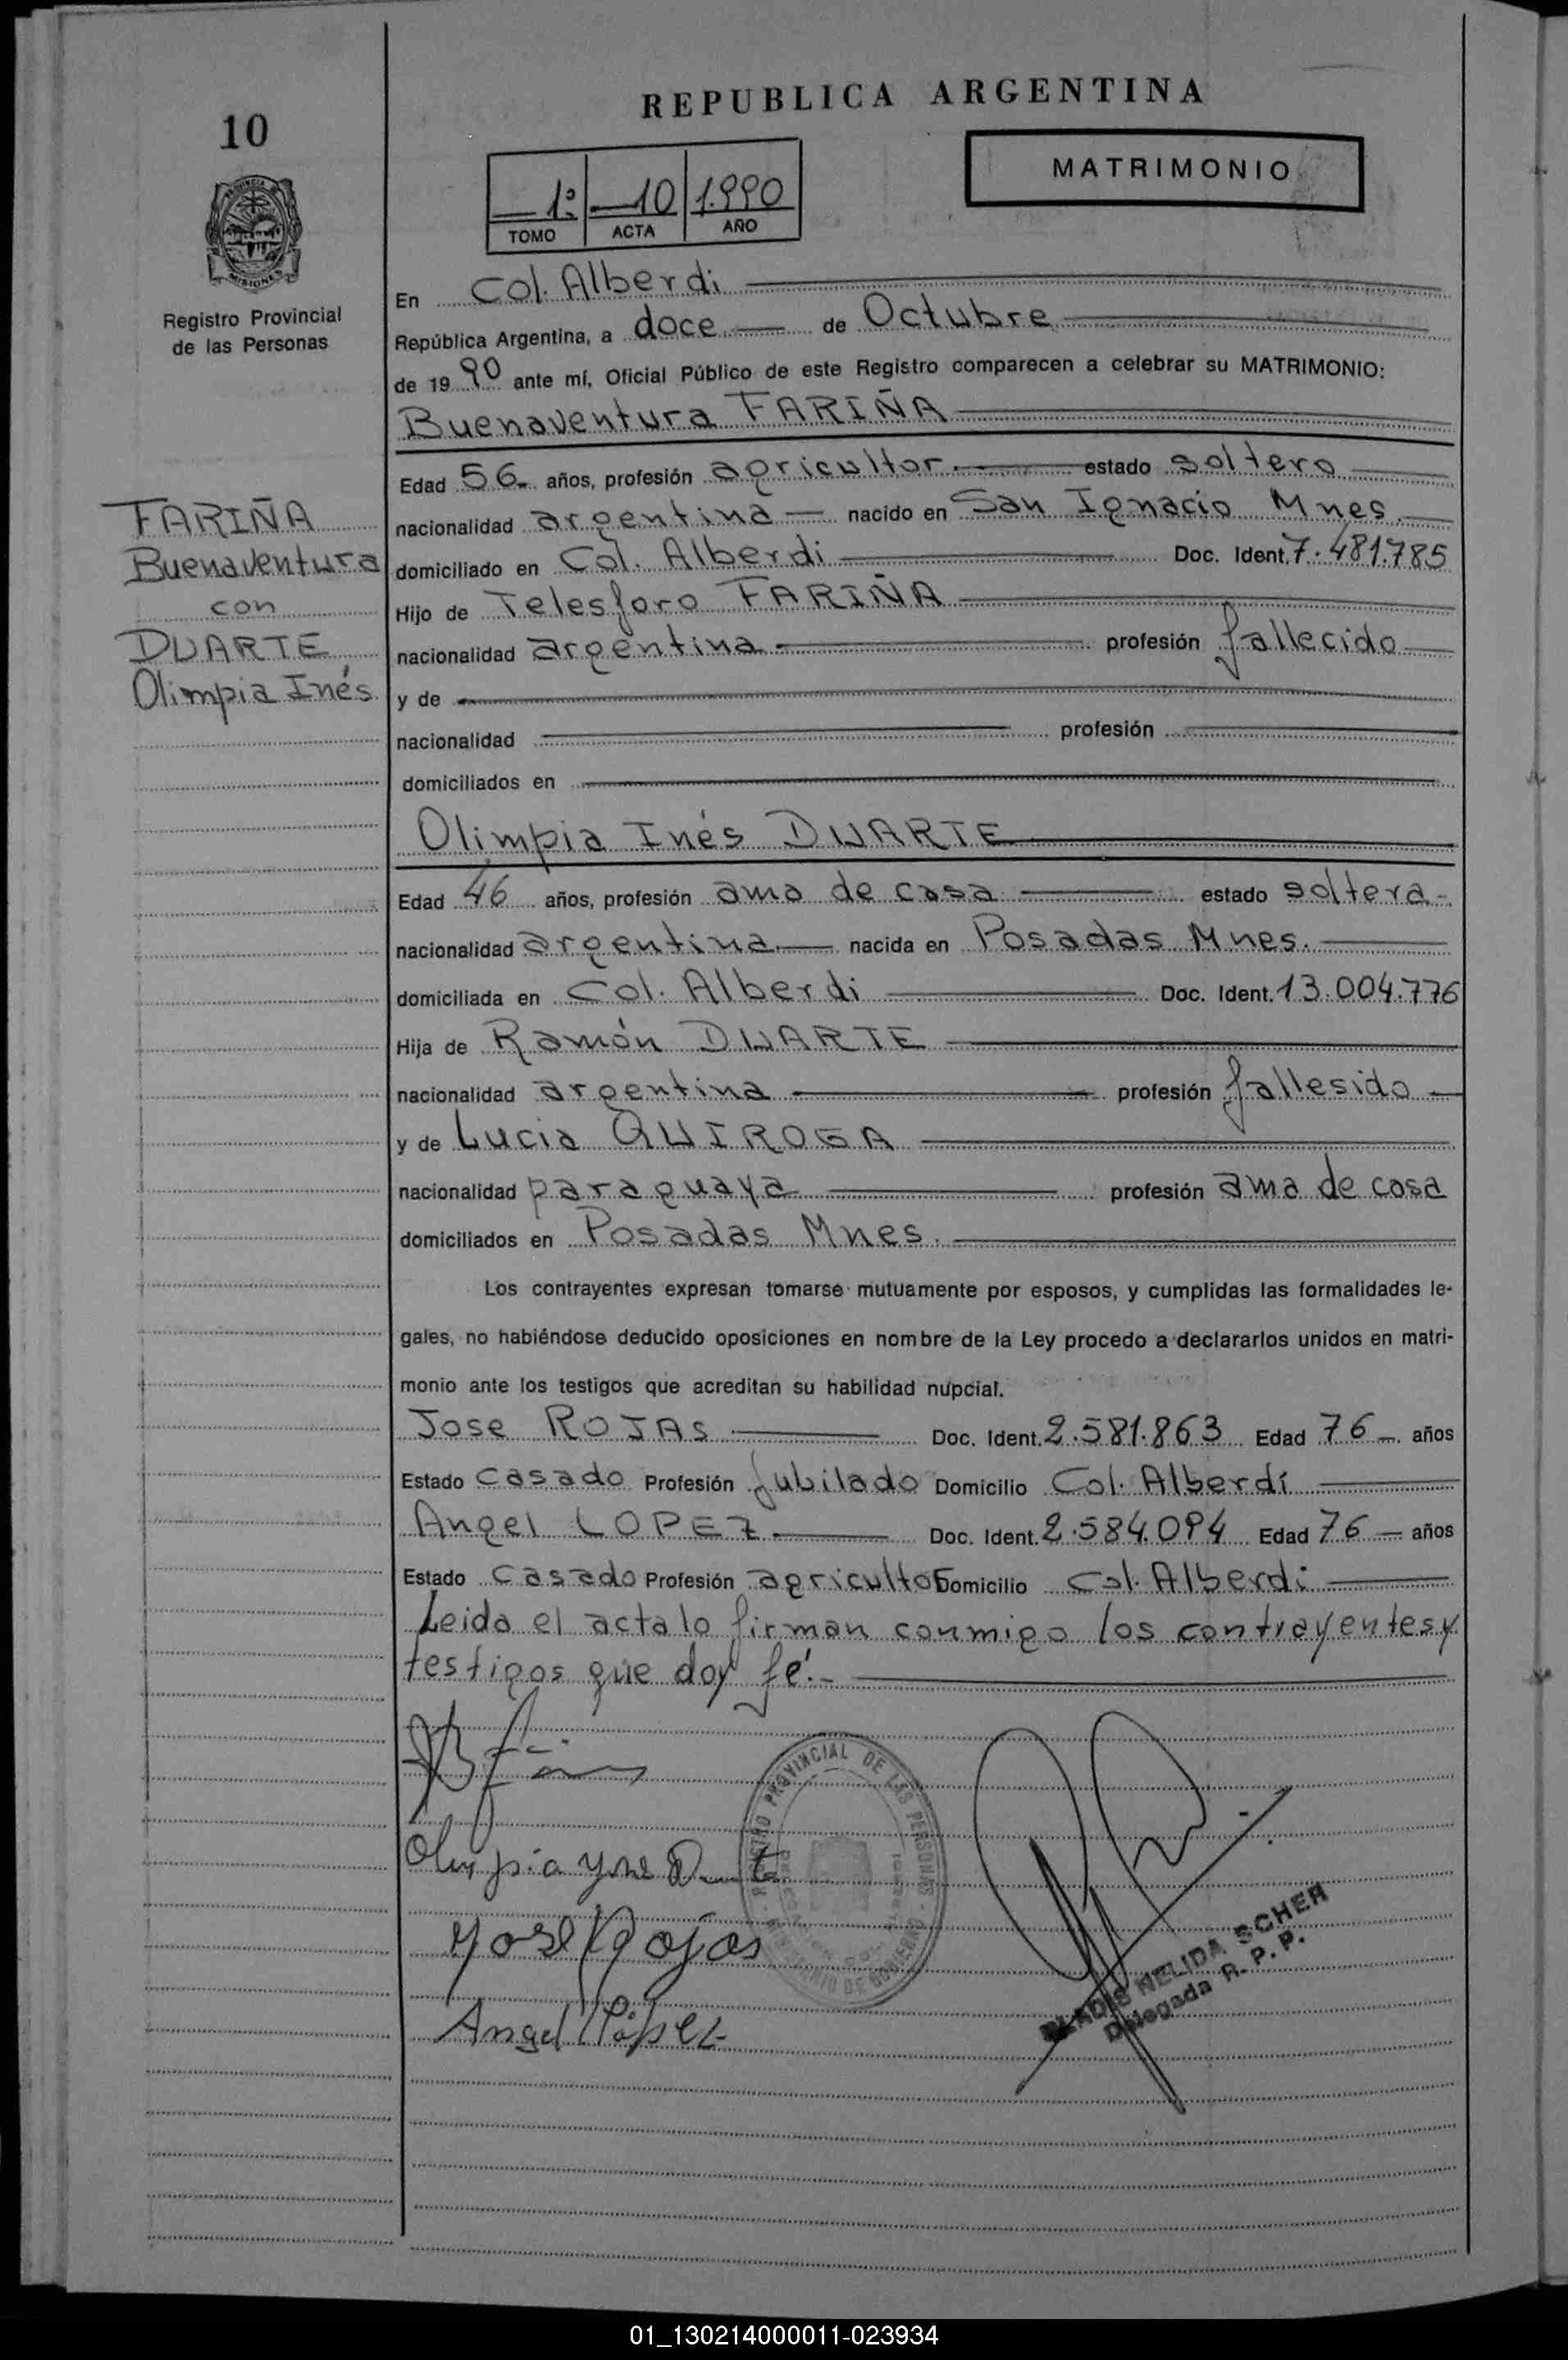 REPUBLICA ARGENTINA
10
MATRIMONIO
1º 10 1.990
TOMO ACTA AÑO
MISIONES
Registro Provincial
de las Personas
En Col. Alberdi
República Argentina, a doce de Octubre
de 19 90 ante mí, Oficial Público de este Registro comparecen a celebrar su MATRIMONIO:
Buenaventura FARIÑA
Edad 56 años, profesión agricultor. estado soltero
nacionalidad argentina nacido en San Ignacio Mnes.
domiciliado en Col. Alberdi Doc. Ident. 7.481.785
Hijo de Telesforo FARIÑA
nacionalidad argentina profesión fallecido
y de
nacionalidad profesión
domiciliados en
FARIÑA
Buenaventura
con
DUARTE
Olimpia Inés.
Olimpia Inés DUARTE
Edad 46 años, profesión ama de casa estado soltera
nacionalidad argentina nacida en Posadas Mnes.
domiciliada en Col. Alberdi Doc. Ident. 13.004.776
Hija de Ramón DUARTE
nacionalidad argentina profesión fallesido
y de Lucia QUIROGA
nacionalidad paraguaya profesión ama de casa
domiciliados en Posadas Mnes.
Los contrayentes expresan tomarse mutuamente por esposos, y cumplidas las formalidades le-
gales, no habiéndose deducido oposiciones en nombre de la Ley procedo a declararlos unidos en matri-
monio ante los testigos que acreditan su habilidad nupcial.
Jose ROJAS Doc. Ident. 2.581.863 Edad 76 años
Estado casado Profesión Jubilado Domicilio Col. Alberdi
Angel LOPEZ Doc. Ident. 2.584.094 Edad 76 años
Estado casado Profesión agricultor Domicilio Col. Alberdi
Leida el acta lo firman conmigo los contrayentes y
testigos que doy fé.
REGISTRO PROVINCIAL DE LAS PERSONAS
MINISTERIO DE GOBIERNO
Olimpia Ynes
José Rojas
Angel López
GLADIS NELIDA SCHER
Delegada R. P. P.
01_130214000011-023934